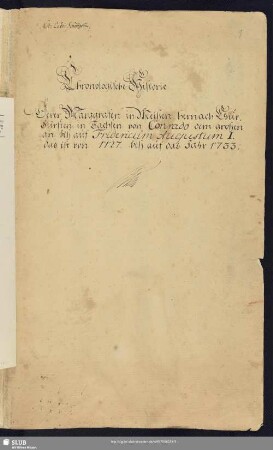 Chronologische Historie
Derer Marggrafen in Meißen hernach Chur
Fürsten in Sachßen von Conrado dem großen
an biß auf Fridericum Augustum I.
das ist von 1127 biß auf das Jahr 1733.
SLUB